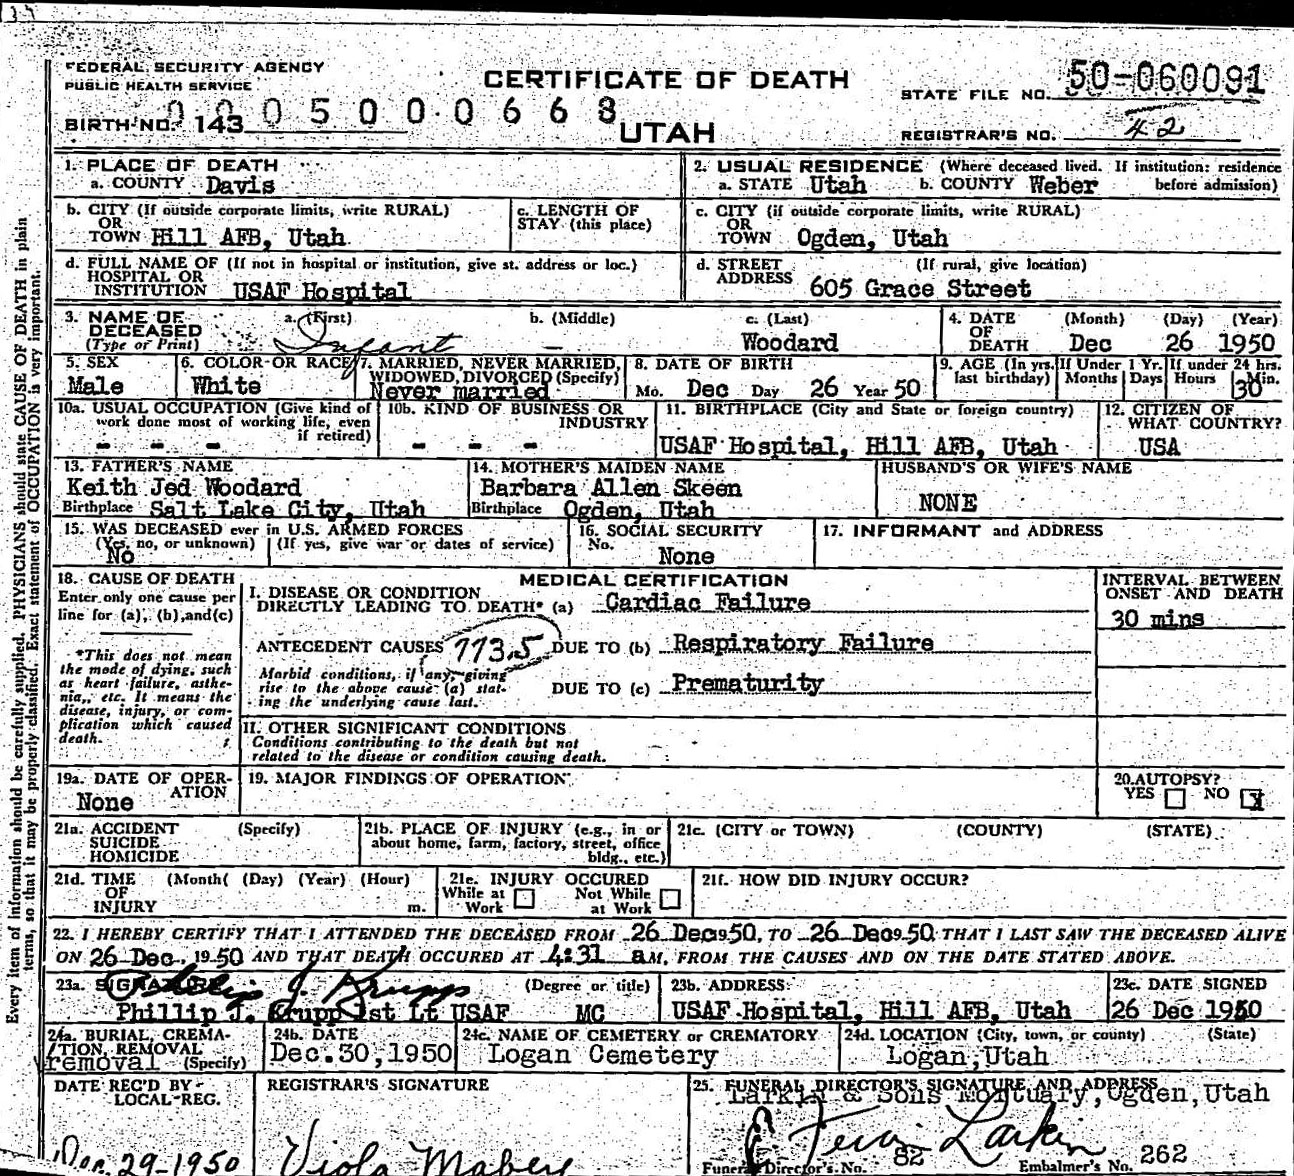 FEDERAL SECURITY AGENCY
PUBLIC HEALTH SERVICE
CERTIFICATE OF DEATH
STATE FILE NO. 50-060091
BIRTH NO. 143 0005000668
UTAH
REGISTRAR'S NO. 42
1. PLACE OF DEATH
a. COUNTY Davis
2. USUAL RESIDENCE (Where deceased lived. If institution: residence before admission)
a. STATE Utah b. COUNTY Weber
b. CITY (If outside corporate limits, write RURAL)
OR
TOWN Hill AFB, Utah
c. LENGTH OF
STAY (this place)
c. CITY (if outside corporate limits, write RURAL)
OR
TOWN Ogden, Utah
d. FULL NAME OF (If not in hospital or institution, give st. address or loc.)
HOSPITAL OR
INSTITUTION USAF Hospital
d. STREET (If rural, give location)
ADDRESS 605 Grace Street
3. NAME OF
DECEASED
(Type or Print)
a. (First) Infant
b. (Middle) -
c. (Last) Woodard
4. DATE
OF
DEATH
(Month) (Day) (Year)
Dec 26 1950
5. SEX
Male
6. COLOR OR RACE
White
7. MARRIED, NEVER MARRIED,
WIDOWED, DIVORCED (Specify)
Never married
8. DATE OF BIRTH
Mo. Dec Day 26 Year 50
9. AGE (In yrs. last birthday)
If Under 1 Yr. Months Days
If under 24 hrs. Hours Min.
30
10a. USUAL OCCUPATION (Give kind of
work done most of working life, even
if retired)
- - -
10b. KIND OF BUSINESS OR
INDUSTRY
- - -
11. BIRTHPLACE (City and State or foreign country)
USAF Hospital, Hill AFB, Utah
12. CITIZEN OF
WHAT COUNTRY?
USA
13. FATHER'S NAME
Keith Jed Woodard
Birthplace Salt Lake City, Utah
14. MOTHER'S MAIDEN NAME
Barbara Allen Skeen
Birthplace Ogden, Utah
HUSBAND'S OR WIFE'S NAME
NONE
15. WAS DECEASED ever in U.S. ARMED FORCES
(Yes, no, or unknown) (If yes, give war or dates of service)
No
16. SOCIAL SECURITY
No. None
17. INFORMANT and ADDRESS
18. CAUSE OF DEATH
Enter only one cause per
line for (a), (b), and (c)
*This does not mean
the mode of dying, such
as heart failure, asthe-
nia, etc. It means the
disease, injury, or com-
plication which caused
death.
MEDICAL CERTIFICATION
I. DISEASE OR CONDITION
DIRECTLY LEADING TO DEATH* (a) Cardiac Failure
ANTECEDENT CAUSES 773.5 DUE TO (b) Respiratory Failure
Morbid conditions, if any, giving
rise to the above cause (a) stat-
ing the underlying cause last.
DUE TO (c) Prematurity
II. OTHER SIGNIFICANT CONDITIONS
Conditions contributing to the death but not
related to the disease or condition causing death.
INTERVAL BETWEEN
ONSET AND DEATH
30 mins
19a. DATE OF OPER-
ATION
None
19. MAJOR FINDINGS OF OPERATION
20. AUTOPSY?
YES NO X
21a. ACCIDENT (Specify)
SUICIDE
HOMICIDE
21b. PLACE OF INJURY (e.g., in or
about home, farm, factory, street, office
bldg., etc.)
21c. (CITY or TOWN) (COUNTY) (STATE)
21d. TIME (Month( (Day) (Year) (Hour)
OF
INJURY m.
21e. INJURY OCCURED
While at Work Not While at Work
21f. HOW DID INJURY OCCUR?
22. I HEREBY CERTIFY THAT I ATTENDED THE DECEASED FROM 26 Dec 19 50, TO 26 Dec 19 50 THAT I LAST SAW THE DECEASED ALIVE
ON 26 Dec, 19 50 AND THAT DEATH OCCURED AT 4:31 am, FROM THE CAUSES AND ON THE DATE STATED ABOVE.
23a. SIGNATURE (Degree or title)
Philip J Krupp
Phillip J. Krupp 1st Lt USAF MC
23b. ADDRESS:
USAF Hospital, Hill AFB, Utah
23c. DATE SIGNED
26 Dec 1950
24a. BURIAL, CREMA-
TION, REMOVAL
removal (Specify)
24b. DATE
Dec. 30, 1950
24c. NAME OF CEMETERY or CREMATORY
Logan Cemetery
24d. LOCATION (City, town, or county) (State)
Logan, Utah
DATE REC'D BY
LOCAL REG.
Dec. 29-1950
REGISTRAR'S SIGNATURE
Viola Mabey
25. FUNERAL DIRECTOR'S SIGNATURE AND ADDRESS
Larkin & Sons Mortuary, Ogden, Utah
Larkin
Funeral Director's No. 82 Embalmer's No. 262
Every item of information should be carefully supplied. PHYSICIANS should state CAUSE OF DEATH in plain
terms, so that it may be properly classified. Exact statement of OCCUPATION is very important.